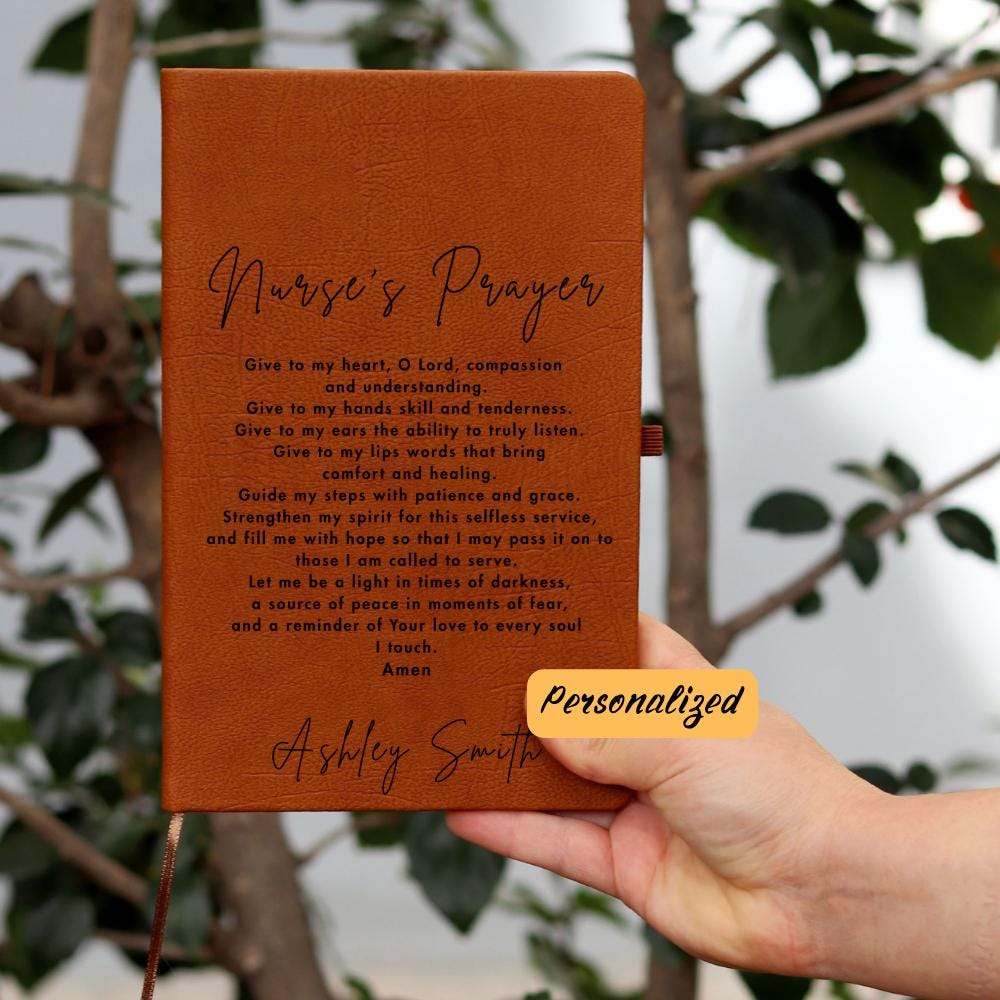 Nurse's Prayer
Give to my heart, O Lord, compassion
and understanding.
Give to my hands skill and tenderness.
Give to my ears the ability to truly listen.
Give to my lips words that bring
comfort and healing.
Guide my steps with patience and grace.
Strengthen my spirit for this selfless service,
and fill me with hope so that I may pass it on to
those I am called to serve.
Let me be a light in times of darkness,
a source of peace in moments of fear,
and a reminder of Your love to every soul
I touch.
Amen
Personalized
Ashley Smith